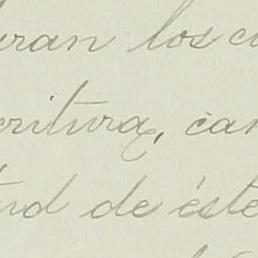 eran los c
critura, can
tud de éste